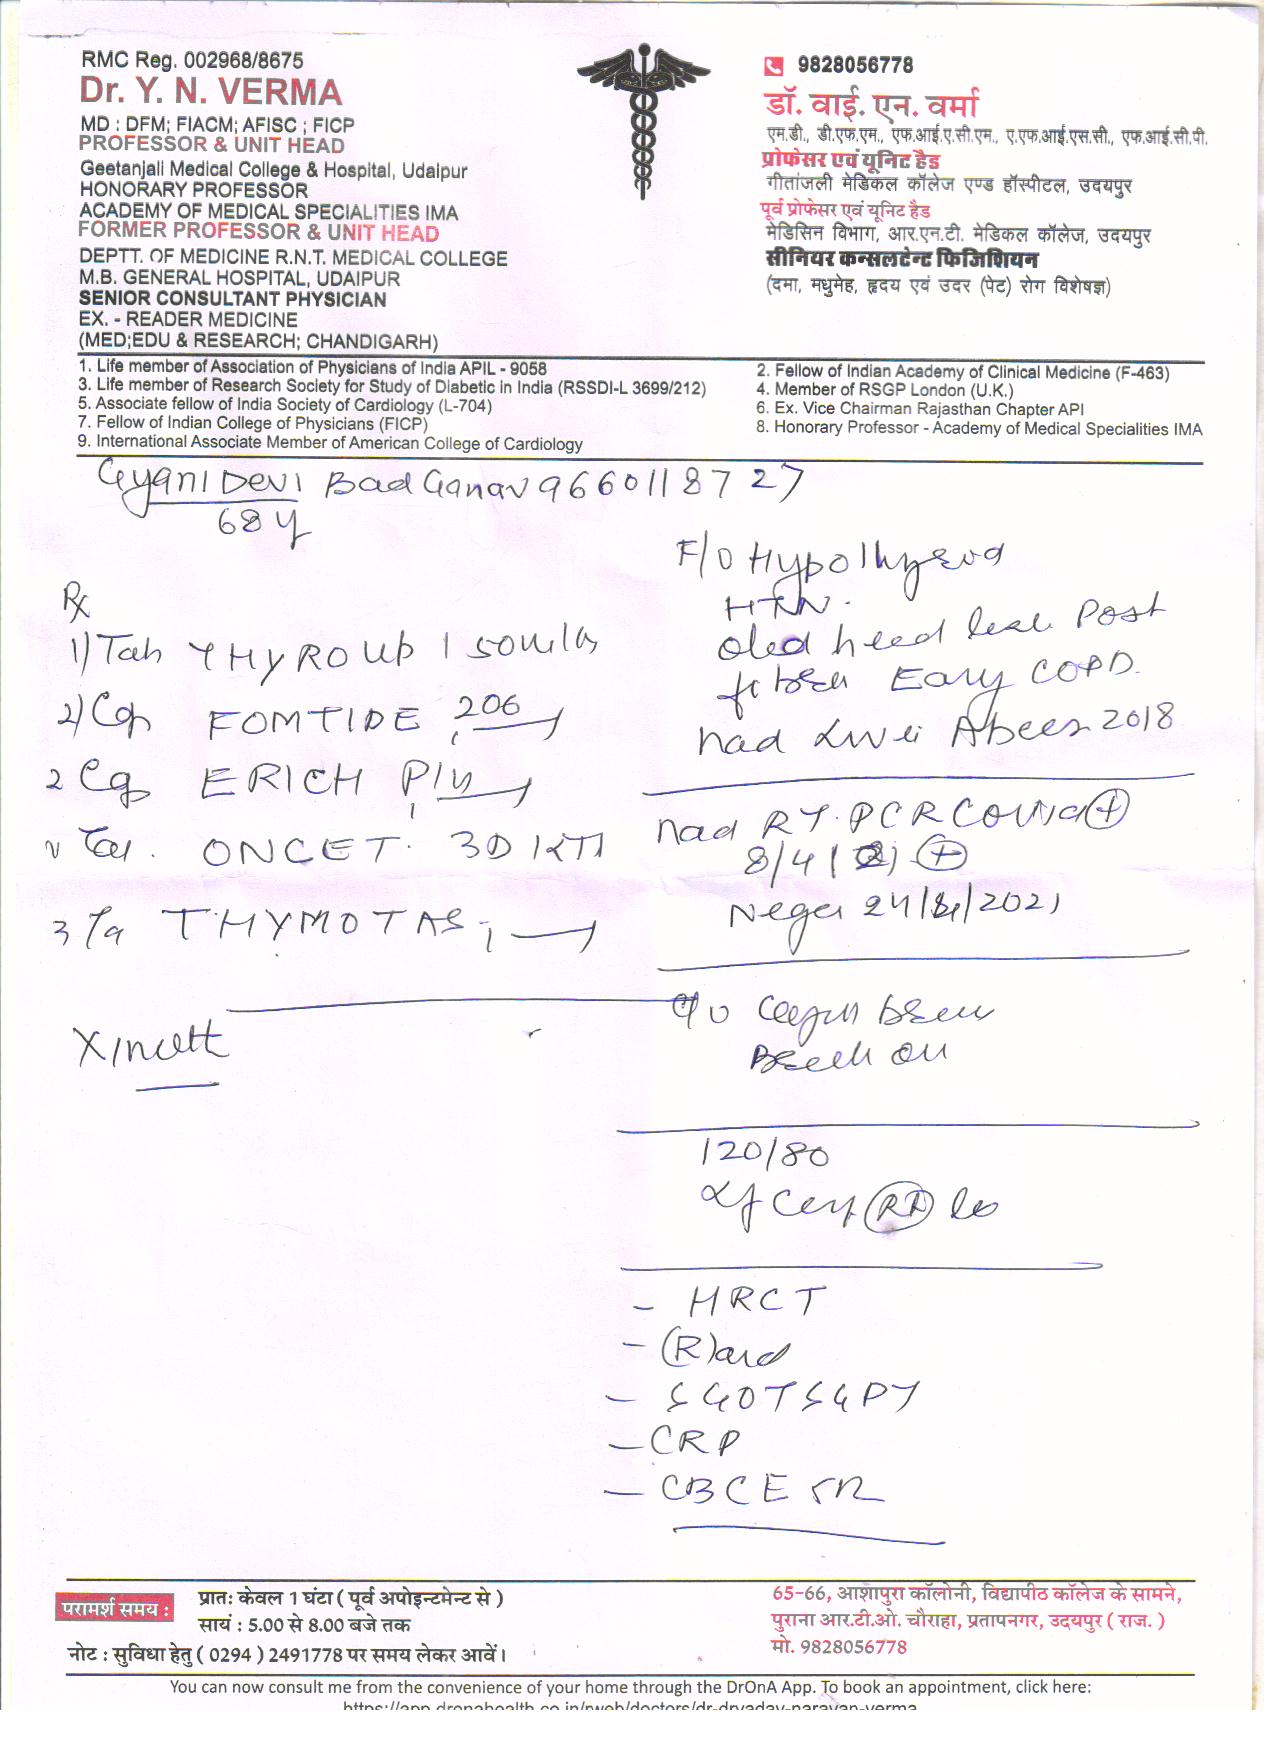 RMC Reg. 002968/8675
Dr. Y. N. VERMA
MD : DFM; FIACM; AFISC ; FICP
PROFESSOR & UNIT HEAD
Geetanjali Medical College & Hospital, Udaipur
HONORARY PROFESSOR
ACADEMY OF MEDICAL SPECIALITIES IMA
FORMER PROFESSOR & UNIT HEAD
DEPTT. OF MEDICINE R.N.T. MEDICAL COLLEGE
M.B. GENERAL HOSPITAL, UDAIPUR
SENIOR CONSULTANT PHYSICIAN
EX. - READER MEDICINE
(MED;EDU & RESEARCH; CHANDIGARH)
9828056778
डॉ. वाई. एन. वर्मा
एम.डी., डी.एफ.एम., एफ.आई.ए.सी.एम., ए.एफ.आई.एस.सी., एफ.आई.सी.पी.
प्रोफेसर एवं यूनिट हैड
गीतांजली मेडिकल कॉलेज एण्ड हॉस्पीटल, उदयपुर
पूर्व प्रोफेसर एवं यूनिट हैड
मेडिसिन विभाग, आर.एन.टी. मेडिकल कॉलेज, उदयपुर
सीनियर कन्सलटेन्ट फिजिशियन
(दमा, मधुमेह, हृदय एवं उदर (पेट) रोग विशेषज्ञ)
1. Life member of Association of Physicians of India APIL - 9058
2. Fellow of Indian Academy of Clinical Medicine (F-463)
3. Life member of Research Society for Study of Diabetic in India (RSSDI-L 3699/212)
4. Member of RSGP London (U.K.)
5. Associate fellow of India Society of Cardiology (L-704)
6. Ex. Vice Chairman Rajasthan Chapter API
7. Fellow of Indian College of Physicians (FICP)
8. Honorary Professor - Academy of Medical Specialities IMA
9. International Associate Member of American College of Cardiology
Gyani Devi Bad Ganav 9660118727
68 y
Rx
1) Tab THYROUP 150
2) Cap FOMTIDE 206
2 Cap ERICH
ONCET 3D
3 THYMOTAS
F/O Hypothyroid
HTN.
Post
Early COPD.
2018
RT.PCR COVID +
8/4
24/4/2021
120/80
- HRCT
- SGOT SGPT
- CRP
- CBC ESR
परामर्श समय :
प्रातः केवल 1 घंटा ( पूर्व अपोइन्टमेन्ट से )
सायं : 5.00 से 8.00 बजे तक
नोट : सुविधा हेतु ( 0294 ) 2491778 पर समय लेकर आवें।
65-66, आशापुरा कॉलोनी, विद्यापीठ कॉलेज के सामने,
पुराना आर.टी.ओ. चौराहा, प्रतापनगर, उदयपुर ( राज. )
मो. 9828056778
You can now consult me from the convenience of your home through the DrOnA App. To book an appointment, click here:
https://app.dronahealth.co.in/rweb/doctors/dr-dryadav-narayan-verma